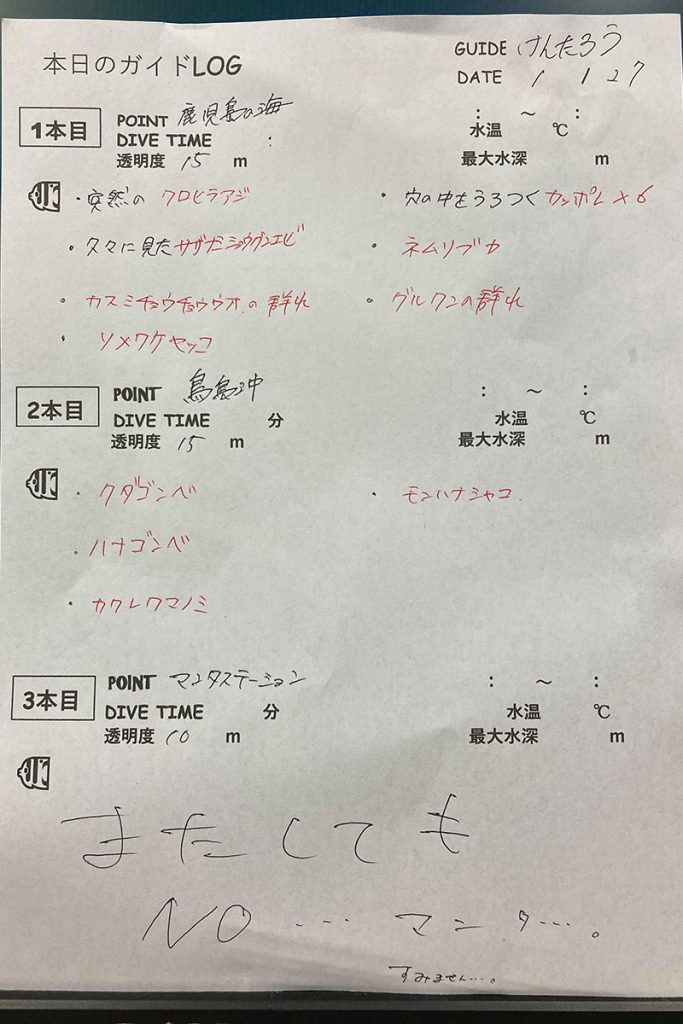 本日のガイドLOG
GUIDE けんたろう
DATE 1 1 27
1本目
POINT 鹿児島の海
DIVE TIME :
透明度 15 m
: ~ :
水温 ℃
最大水深 m
・突然の クロヒラアジ
・穴の中をうろつくカンポレ×6
・久々に見たサザナミショウグンエビ
・ネムリブカ
・カスミチョウチョウウオ の群れ
・グルクンの群れ
・ソメワケヤッコ
2本目
POINT 鳥島沖
DIVE TIME 分
透明度 15 m
: ~ :
水温 ℃
最大水深 m
・クダゴンベ
・モンハナシャコ
・ハナゴンベ
・カクレクマノミ
3本目
POINT マンタステーション
DIVE TIME 分
透明度 10 m
: ~ :
水温 ℃
最大水深 m
またしても
NO……マンタ…。
すみません…。